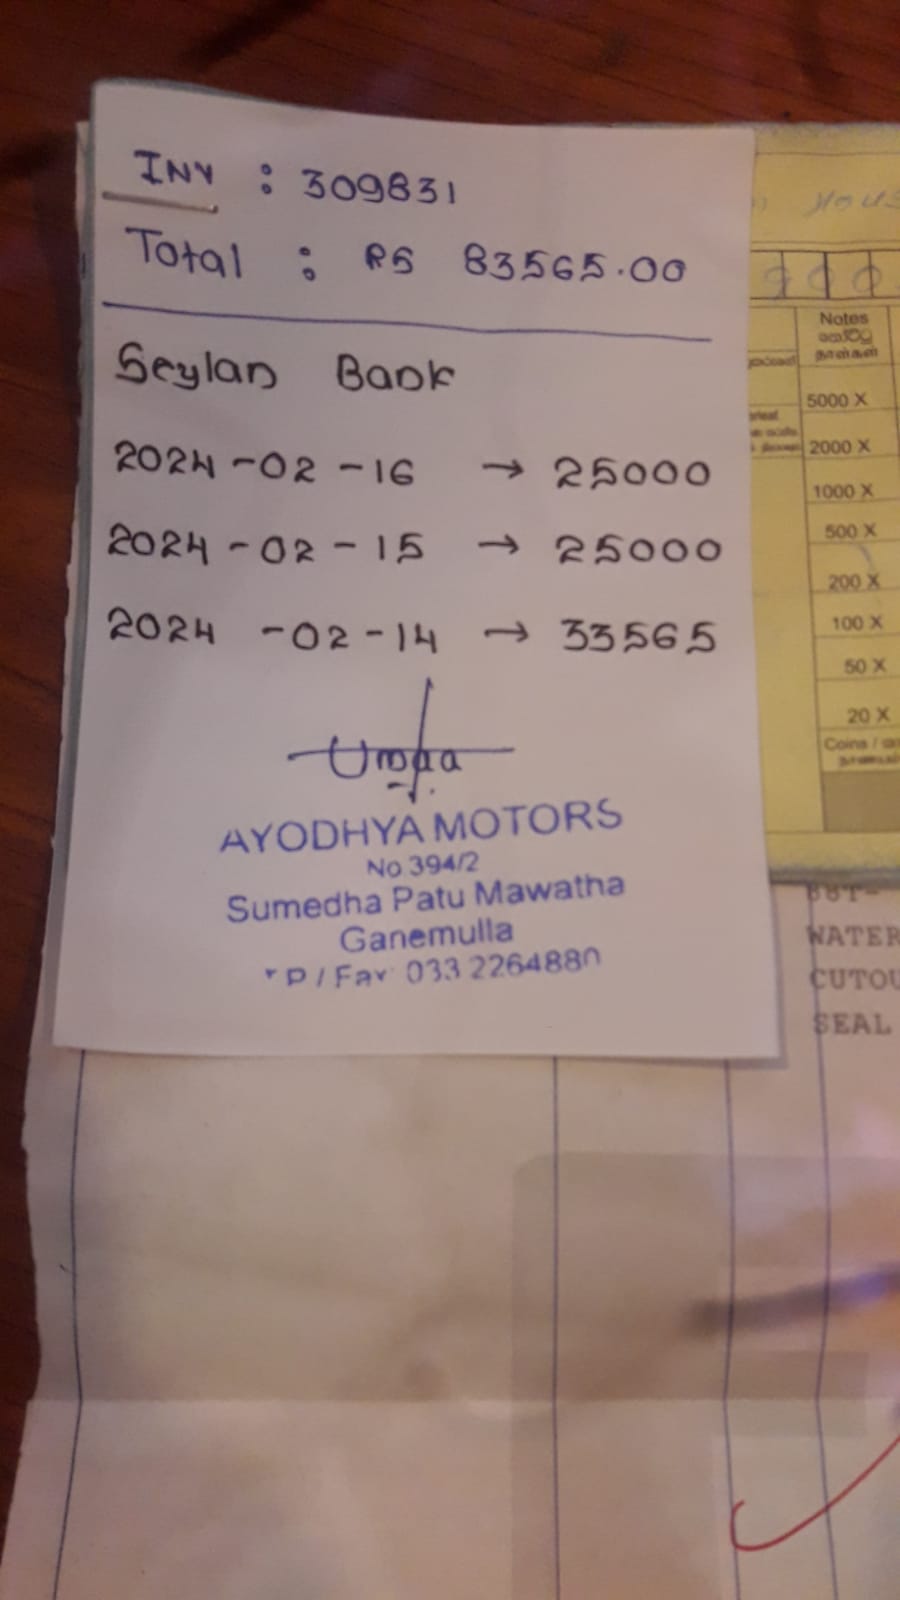 INV : 309831
Total : RS 83565.00
Seylan Bank
2024-02-16 → 25000
2024-02-15 → 25000
2024-02-14 → 33565
AYODHYA MOTORS
No 394/2
Sumedha Patu Mawatha
Ganemulla
P / Fax 033 2264880
Notes
5000 X
2000 X
1000 X
500 X
200 X
100 X
50 X
20 X
Coins /
WATER
CUTOU
SEAL